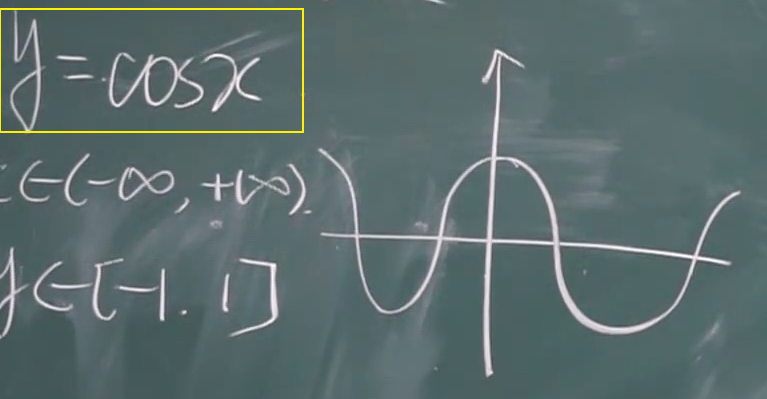 y=cosx
x∈(-∞,+∞).
y∈[-1.1]